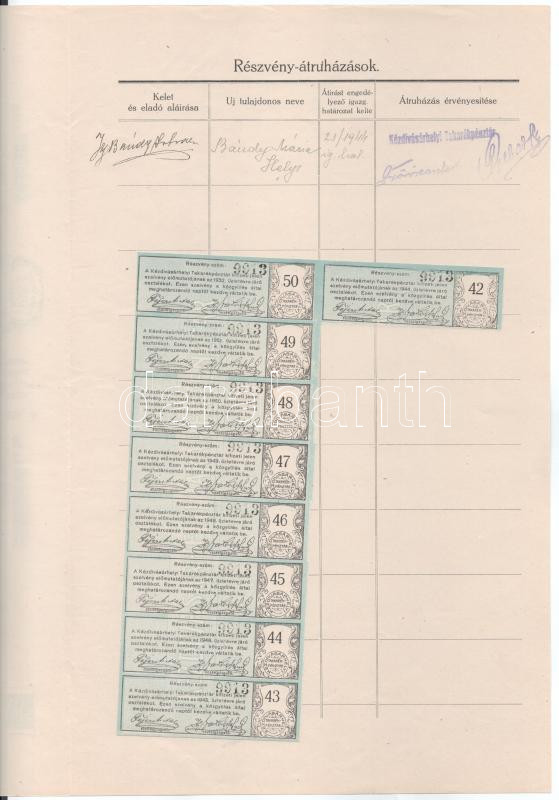 Részvény-átruházások.
Kelet
és eladó aláírása
Uj tulajdonos neve
Átírást engedé-
lyező igazg.
határozat kelte
Átruházás érvényesítése
Bándy Mária
Kézdivásárhelyi Takarékpénztár
Részvény-szám: 9913
A Kézdivásárhelyi Takarékpénztár kifizeti jelen
szelvény előmutatójának az
üzletévre járó
osztalékot. Ezen szelvény a közgyülés által
meghatározandó naptól kezdve váltatik be.
50
Részvény-szám: 9913
A Kézdivásárhelyi Takarékpénztár kifizeti jelen
szelvény előmutatójának az 1944. üzletévre járó
osztalékot. Ezen szelvény a közgyülés által
meghatározandó naptól kezdve váltatik be.
42
Részvény-szám: 9913
A Kézdivásárhelyi Takarékpénztár kifizeti jelen
szelvény előmutatójának az
üzletévre járó
osztalékot. Ezen szelvény a közgyülés által
meghatározandó naptól kezdve váltatik be.
49
Részvény-szám: 9913
A Kézdivásárhelyi Takarékpénztár kifizeti jelen
szelvény előmutatójának az 1950. üzletévre járó
osztalékot. Ezen szelvény a közgyülés által
meghatározandó naptól kezdve váltatik be.
48
darabanth
Részvény-szám: 9913
A Kézdivásárhelyi Takarékpénztár kifizeti jelen
szelvény előmutatójának az 1949. üzletévre járó
osztalékot. Ezen szelvény a közgyülés által
meghatározandó naptól kezdve váltatik be.
47
Részvény-szám: 9913
A Kézdivásárhelyi Takarékpénztár kifizeti jelen
szelvény előmutatójának az 1948. üzletévre járó
osztalékot. Ezen szelvény a közgyülés által
meghatározandó naptól kezdve váltatik be.
46
Részvény-szám: 9913
A Kézdivásárhelyi Takarékpénztár kifizeti jelen
szelvény előmutatójának az 1947. üzletévre járó
osztalékot. Ezen szelvény a közgyülés által
meghatározandó naptól kezdve váltatik be.
45
Részvény-szám: 9913
A Kézdivásárhelyi Takarékpénztár kifizeti jelen
szelvény előmutatójának az 1946. üzletévre járó
osztalékot. Ezen szelvény a közgyülés által
meghatározandó naptól kezdve váltatik be.
44
Részvény-szám: 9913
A Kézdivásárhelyi Takarékpénztár kifizeti jelen
szelvény előmutatójának az 1945. üzletévre járó
osztalékot. Ezen szelvény a közgyülés által
meghatározandó naptól kezdve váltatik be.
43